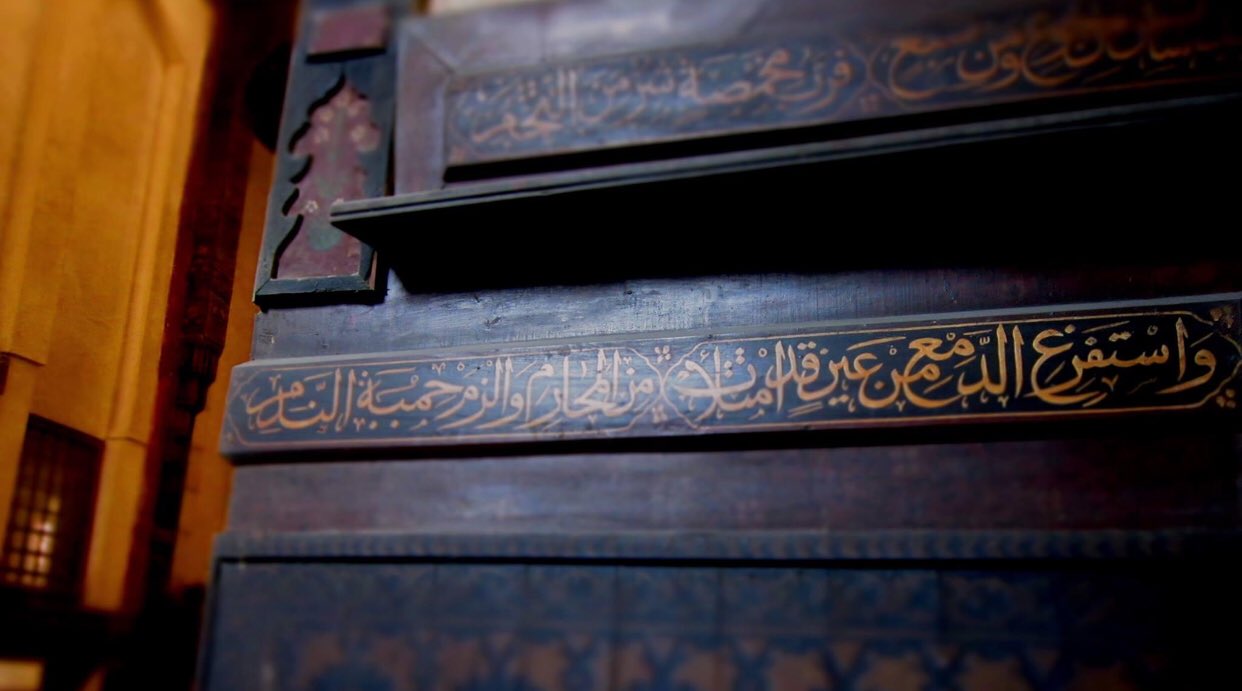 ومن شبع فرب مخمصة شر من التخم
وَاسْتَفْرِغِ الدَّمْعَ مِنْ عَيْنٍ قَدِ امْتَلَأَتْ مِنَ الْمَحَارِمِ وَالْزَمْ حِمْيَةَ النَّدَمِ